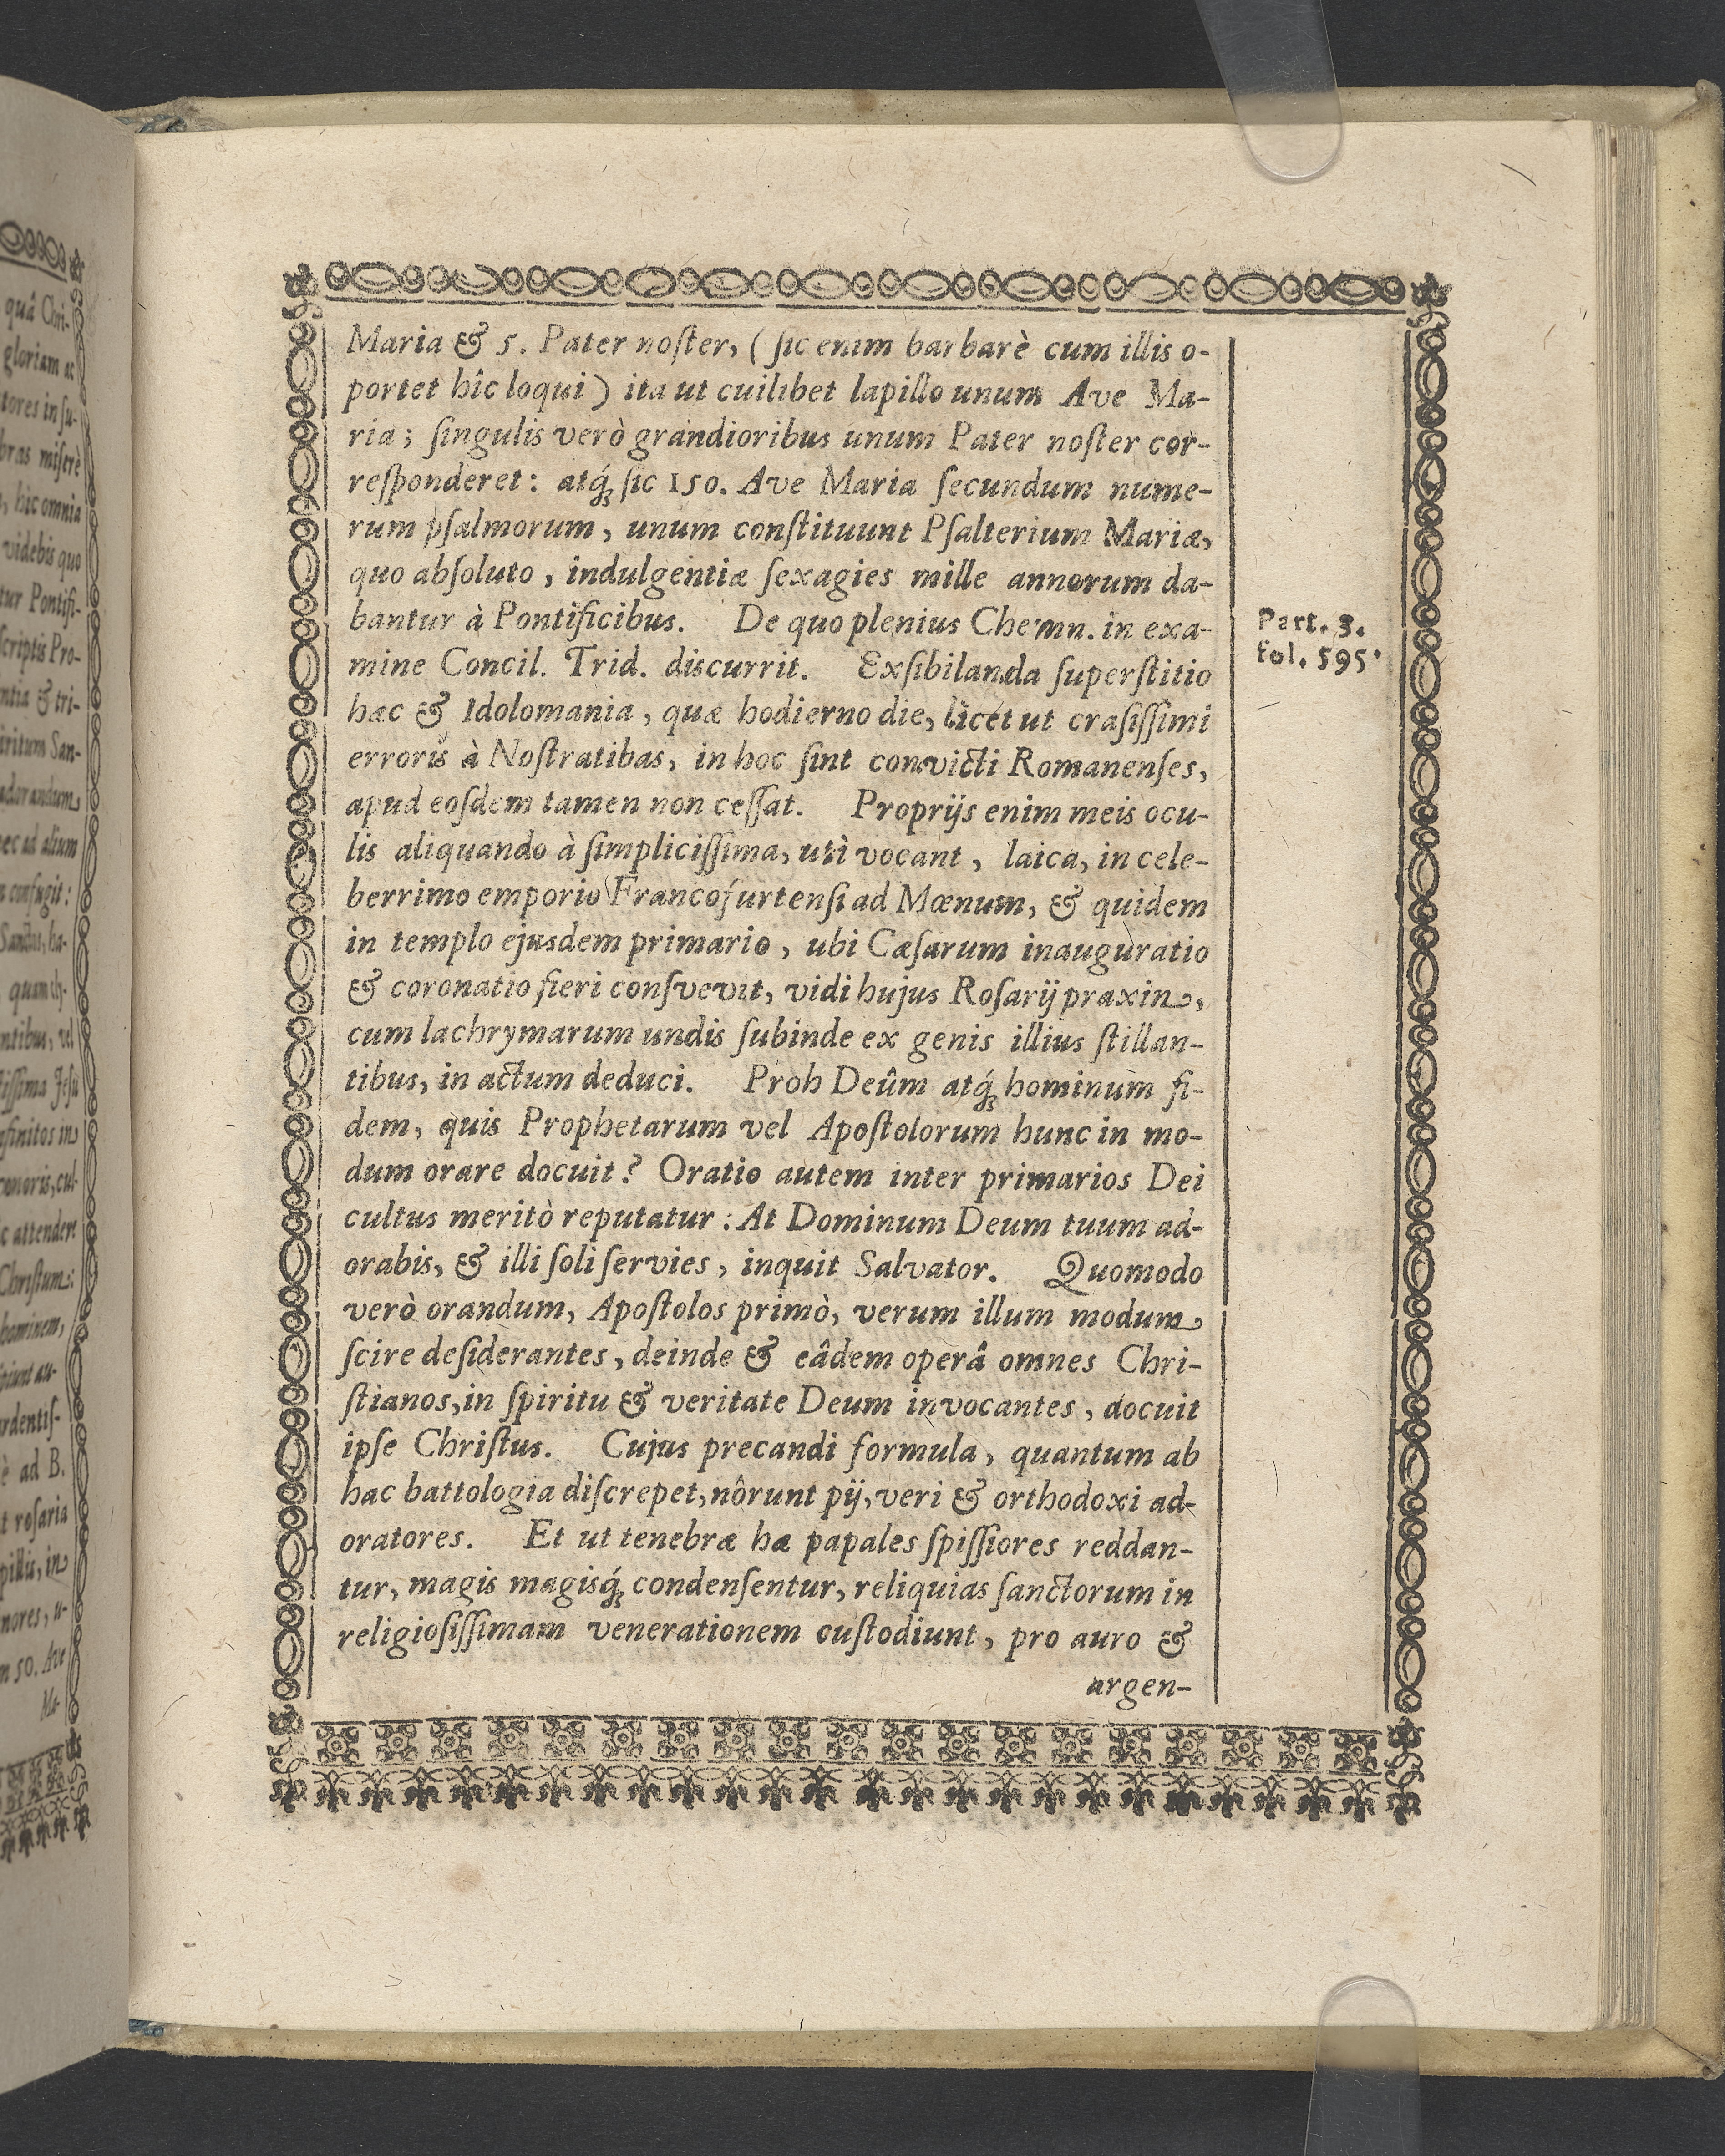 Maria & 5. Pater noſter, ( ſic enim barbarè cum illis o-
portet hîc loqui ) ita ut cuilibet lapillo unum Ave Ma-
ria ; ſingulis verò grandioribus unum Pater noſter cor-
reſponderet : atq́; ſic 150. Ave Maria ſecundum nume-
rum pſalmorum, unum conſtituunt Pſalterium Mariæ,
quo abſoluto, indulgentiæ ſexagies mille annorum da-
bantur à Pontificibus. De quo plenius Chemn. in exa-
Part. 3.
fol. 595.
mine Concil. Trid. discurrit. Exſibilanda ſuperſtitio
hæc & Idolomania, quæ hodierno die, licet ut craſiſſimi
erroris à Noſtratibas, in hoc ſint convicti Romanenſes,
apud eoſdem tamen non ceſſat. Proprijs enim meis ocu-
lis aliquando à ſimpliciſſima, uti vocant, laica, in cele-
berrimo emporio Francofurtenſi ad Mœnum, & quidem
in templo ejusdem primario, ubi Cæſarum inauguratio
& coronatio fieri conſvevit, vidi hujus Roſarij praxin,
cum lachrymarum undis ſubinde ex genis illius ſtillan-
tibus, in actum deduci. Proh Deûm atq́; hominum fi-
dem, quis Prophetarum vel Apoſtolorum hunc in mo-
dum orare docuit ? Oratio autem inter primarios Dei
cultus meritò reputatur : At Dominum Deum tuum ad-
orabis, & illi ſoli ſervies, inquit Salvator. Quomodo
verò orandum, Apoſtolos primò, verum illum modum
ſcire deſiderantes, deinde & eâdem operâ omnes Chri-
ſtianos, in ſpiritu & veritate Deum invocantes, docuit
ipſe Chriſtus. Cujus precandi formula, quantum ab
hac battologia diſcrepet, nôrunt pij, veri & orthodoxi ad-
oratores. Et ut tenebræ hæ papales ſpiſſiores reddan-
tur, magis magisq́; condenſentur, reliquias ſanctorum in
religioſiſſimam venerationem cuſtodiunt, pro auro &
argen-